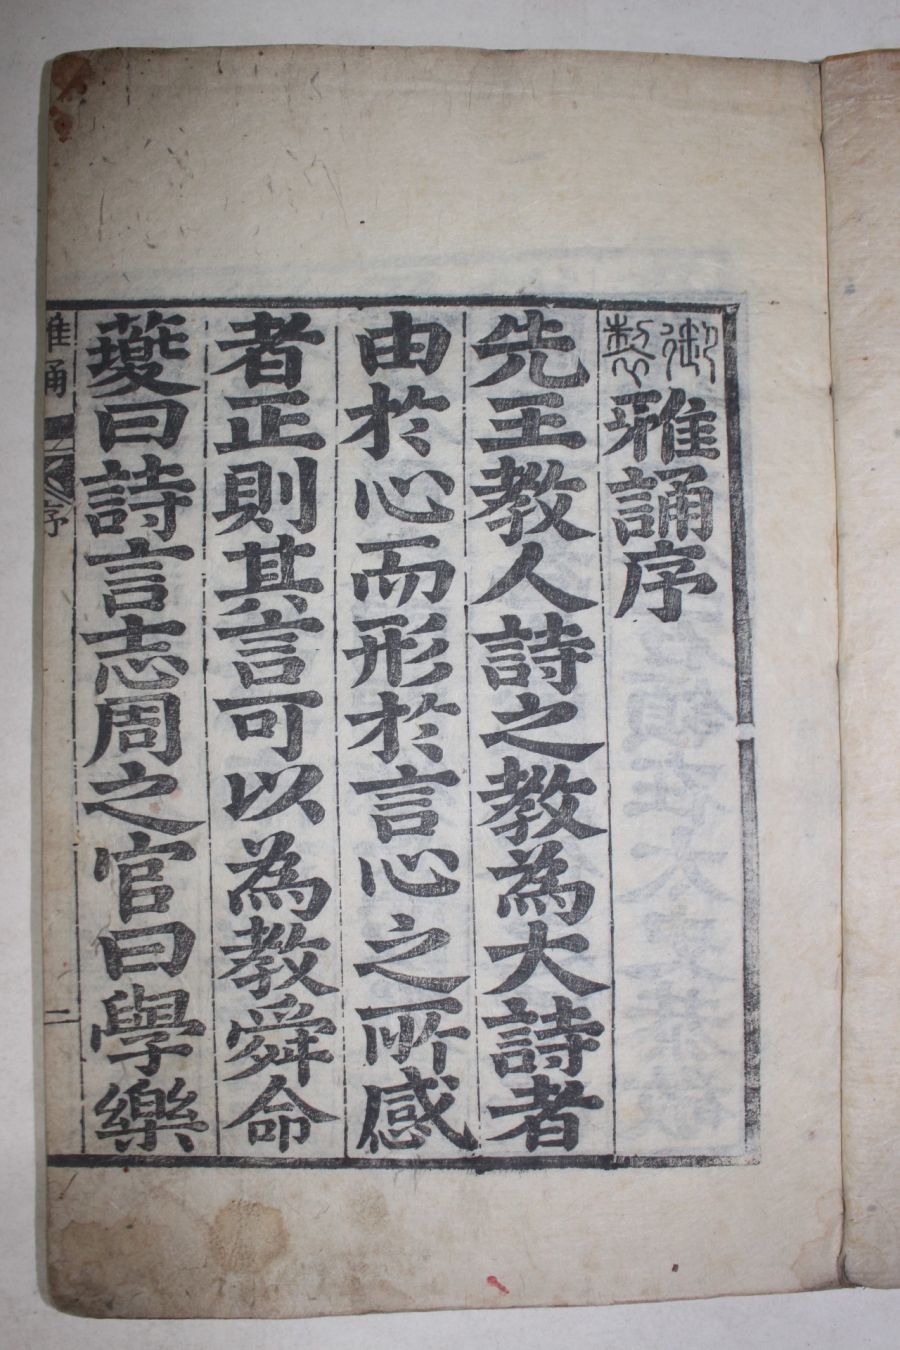 御製雅誦序
先王教人詩之教為大詩者
由於心而形於言心之所感
者正則其言可以為教舜命
夔曰詩言志周之官曰學樂
雅誦 序 二